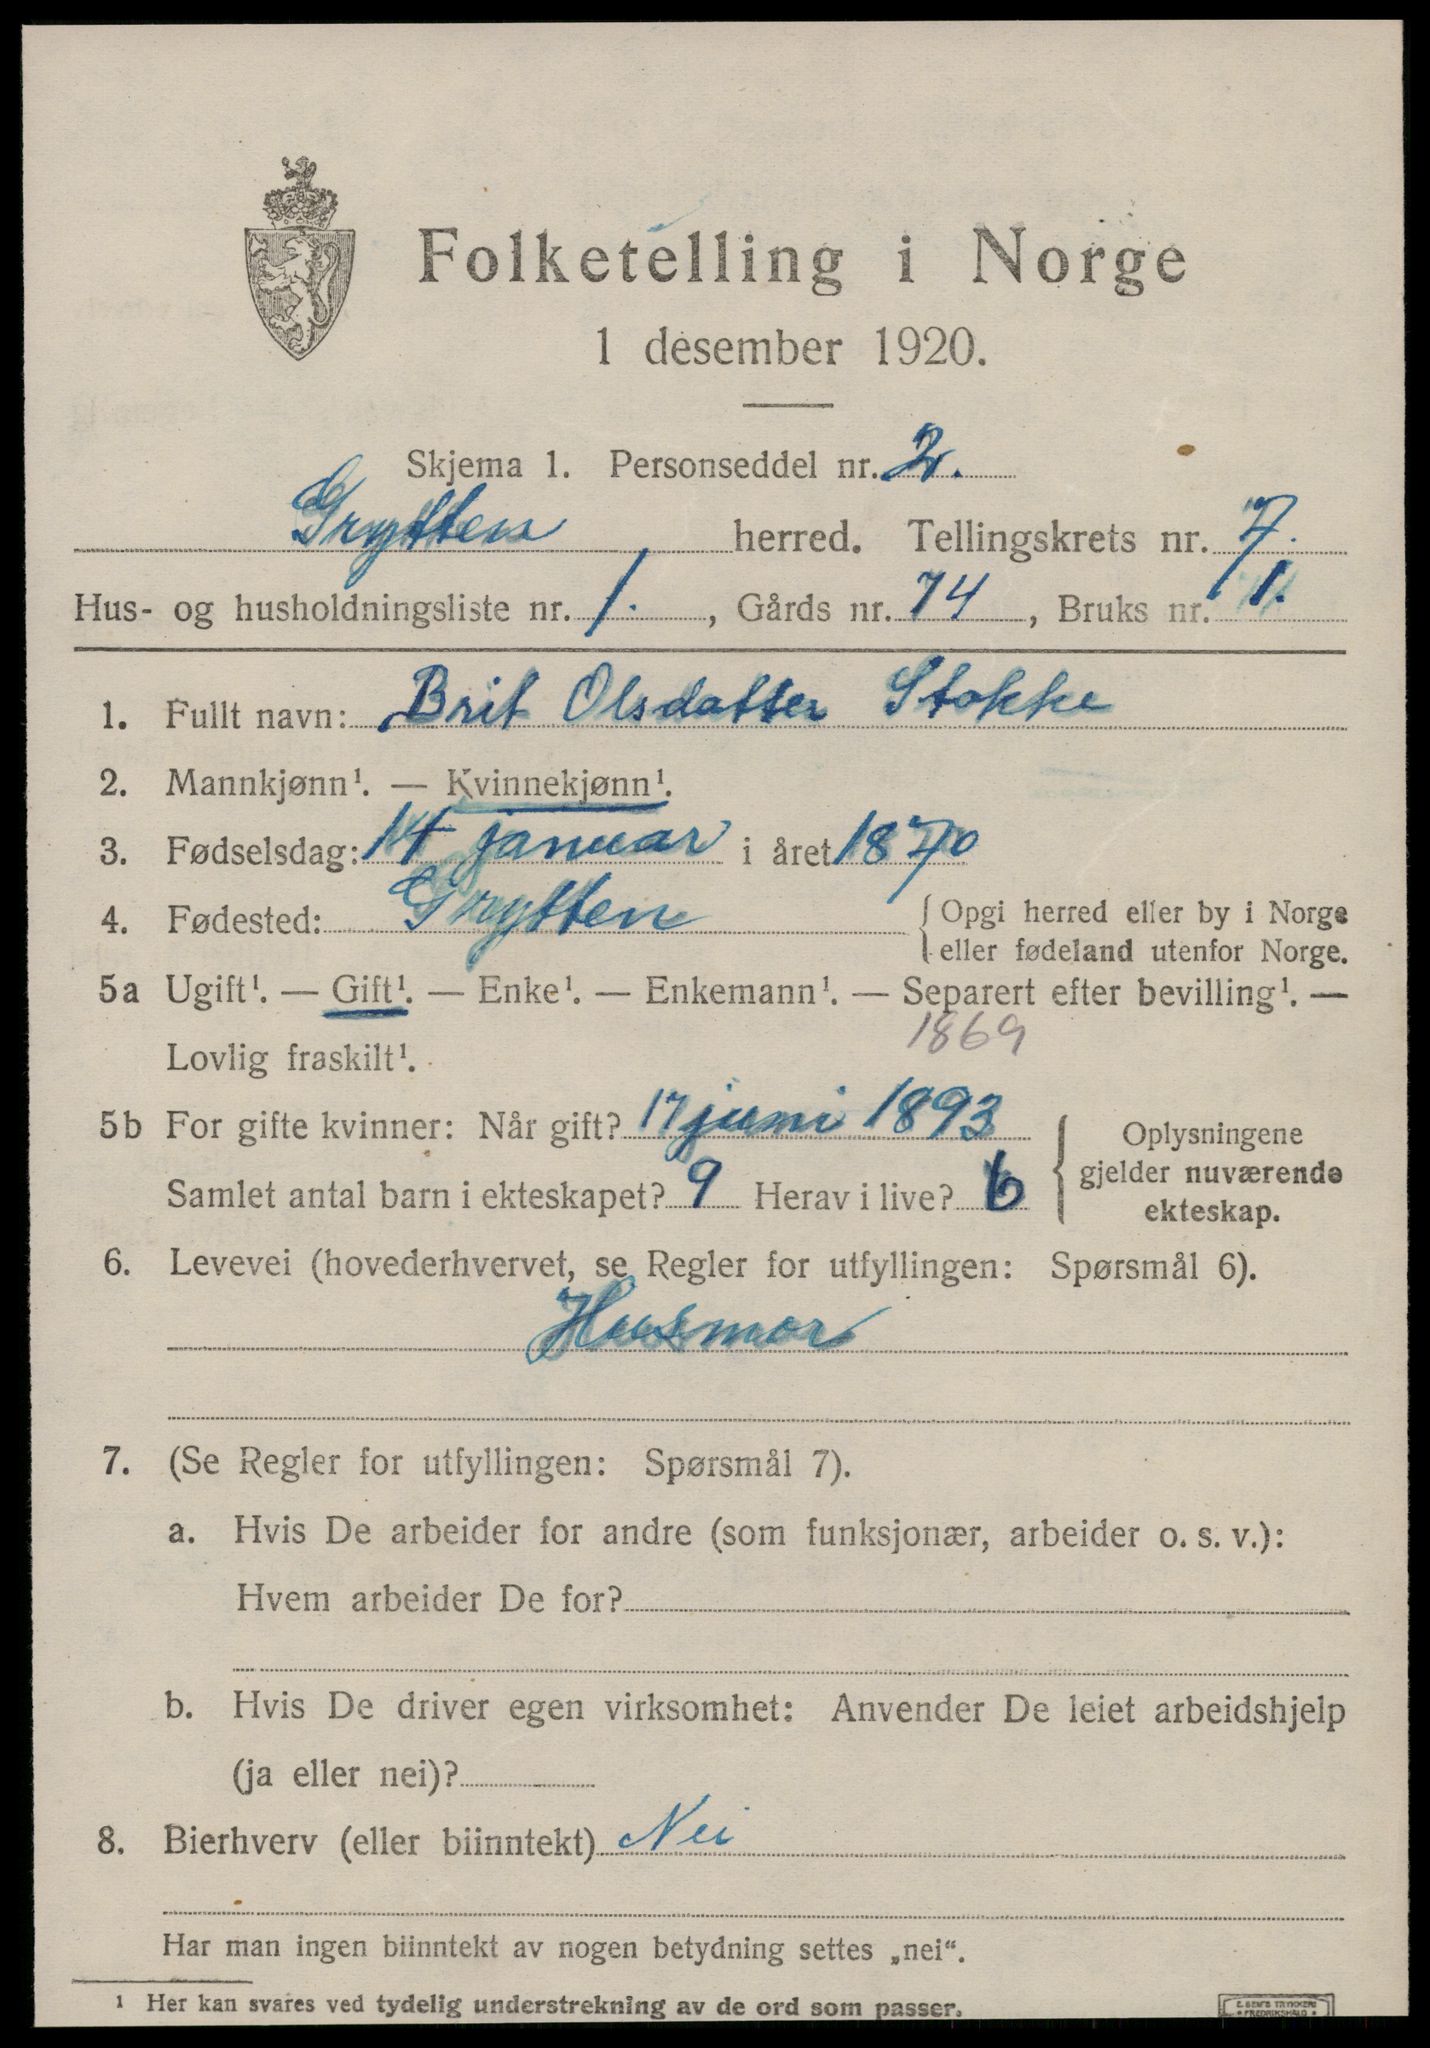 Folketelling i Norge
1 desember 1920.
Skjema 1. Personseddel nr. 2.
Grytten herred. Tellingskrets nr. 7.
Hus- og husholdningsliste nr. 1. , Gårds nr. 74 , Bruks nr. 1.
1. Fullt navn: Brit Olsdatter Stokke
2. Mannkjønn¹. — Kvinnekjønn¹.
3. Fødselsdag: 14 januar i året 1870
4. Fødested: Grytten { Opgi herred eller by i Norge
eller fødeland utenfor Norge.
5a Ugift¹. — Gift¹. — Enke¹. — Enkemann¹. — Separert efter bevilling¹. —
1869
Lovlig fraskilt¹.
5b For gifte kvinner: Når gift? 17 juni 1893
Samlet antal barn i ekteskapet? 9 Herav i live? 6
{ Oplysningene
gjelder nuværende
ekteskap.
6. Levevei (hovederhvervet, se Regler for utfyllingen: Spørsmål 6).
Husmor
7. (Se Regler for utfyllingen: Spørsmål 7).
a. Hvis De arbeider for andre (som funksjonær, arbeider o. s. v.):
Hvem arbeider De for?
b. Hvis De driver egen virksomhet: Anvender De leiet arbeidshjelp
(ja eller nei)?
8. Bierhverv (eller biinntekt) Nei
Har man ingen biinntekt av nogen betydning settes „nei“.
¹ Her kan svares ved tydelig understrekning av de ord som passer.